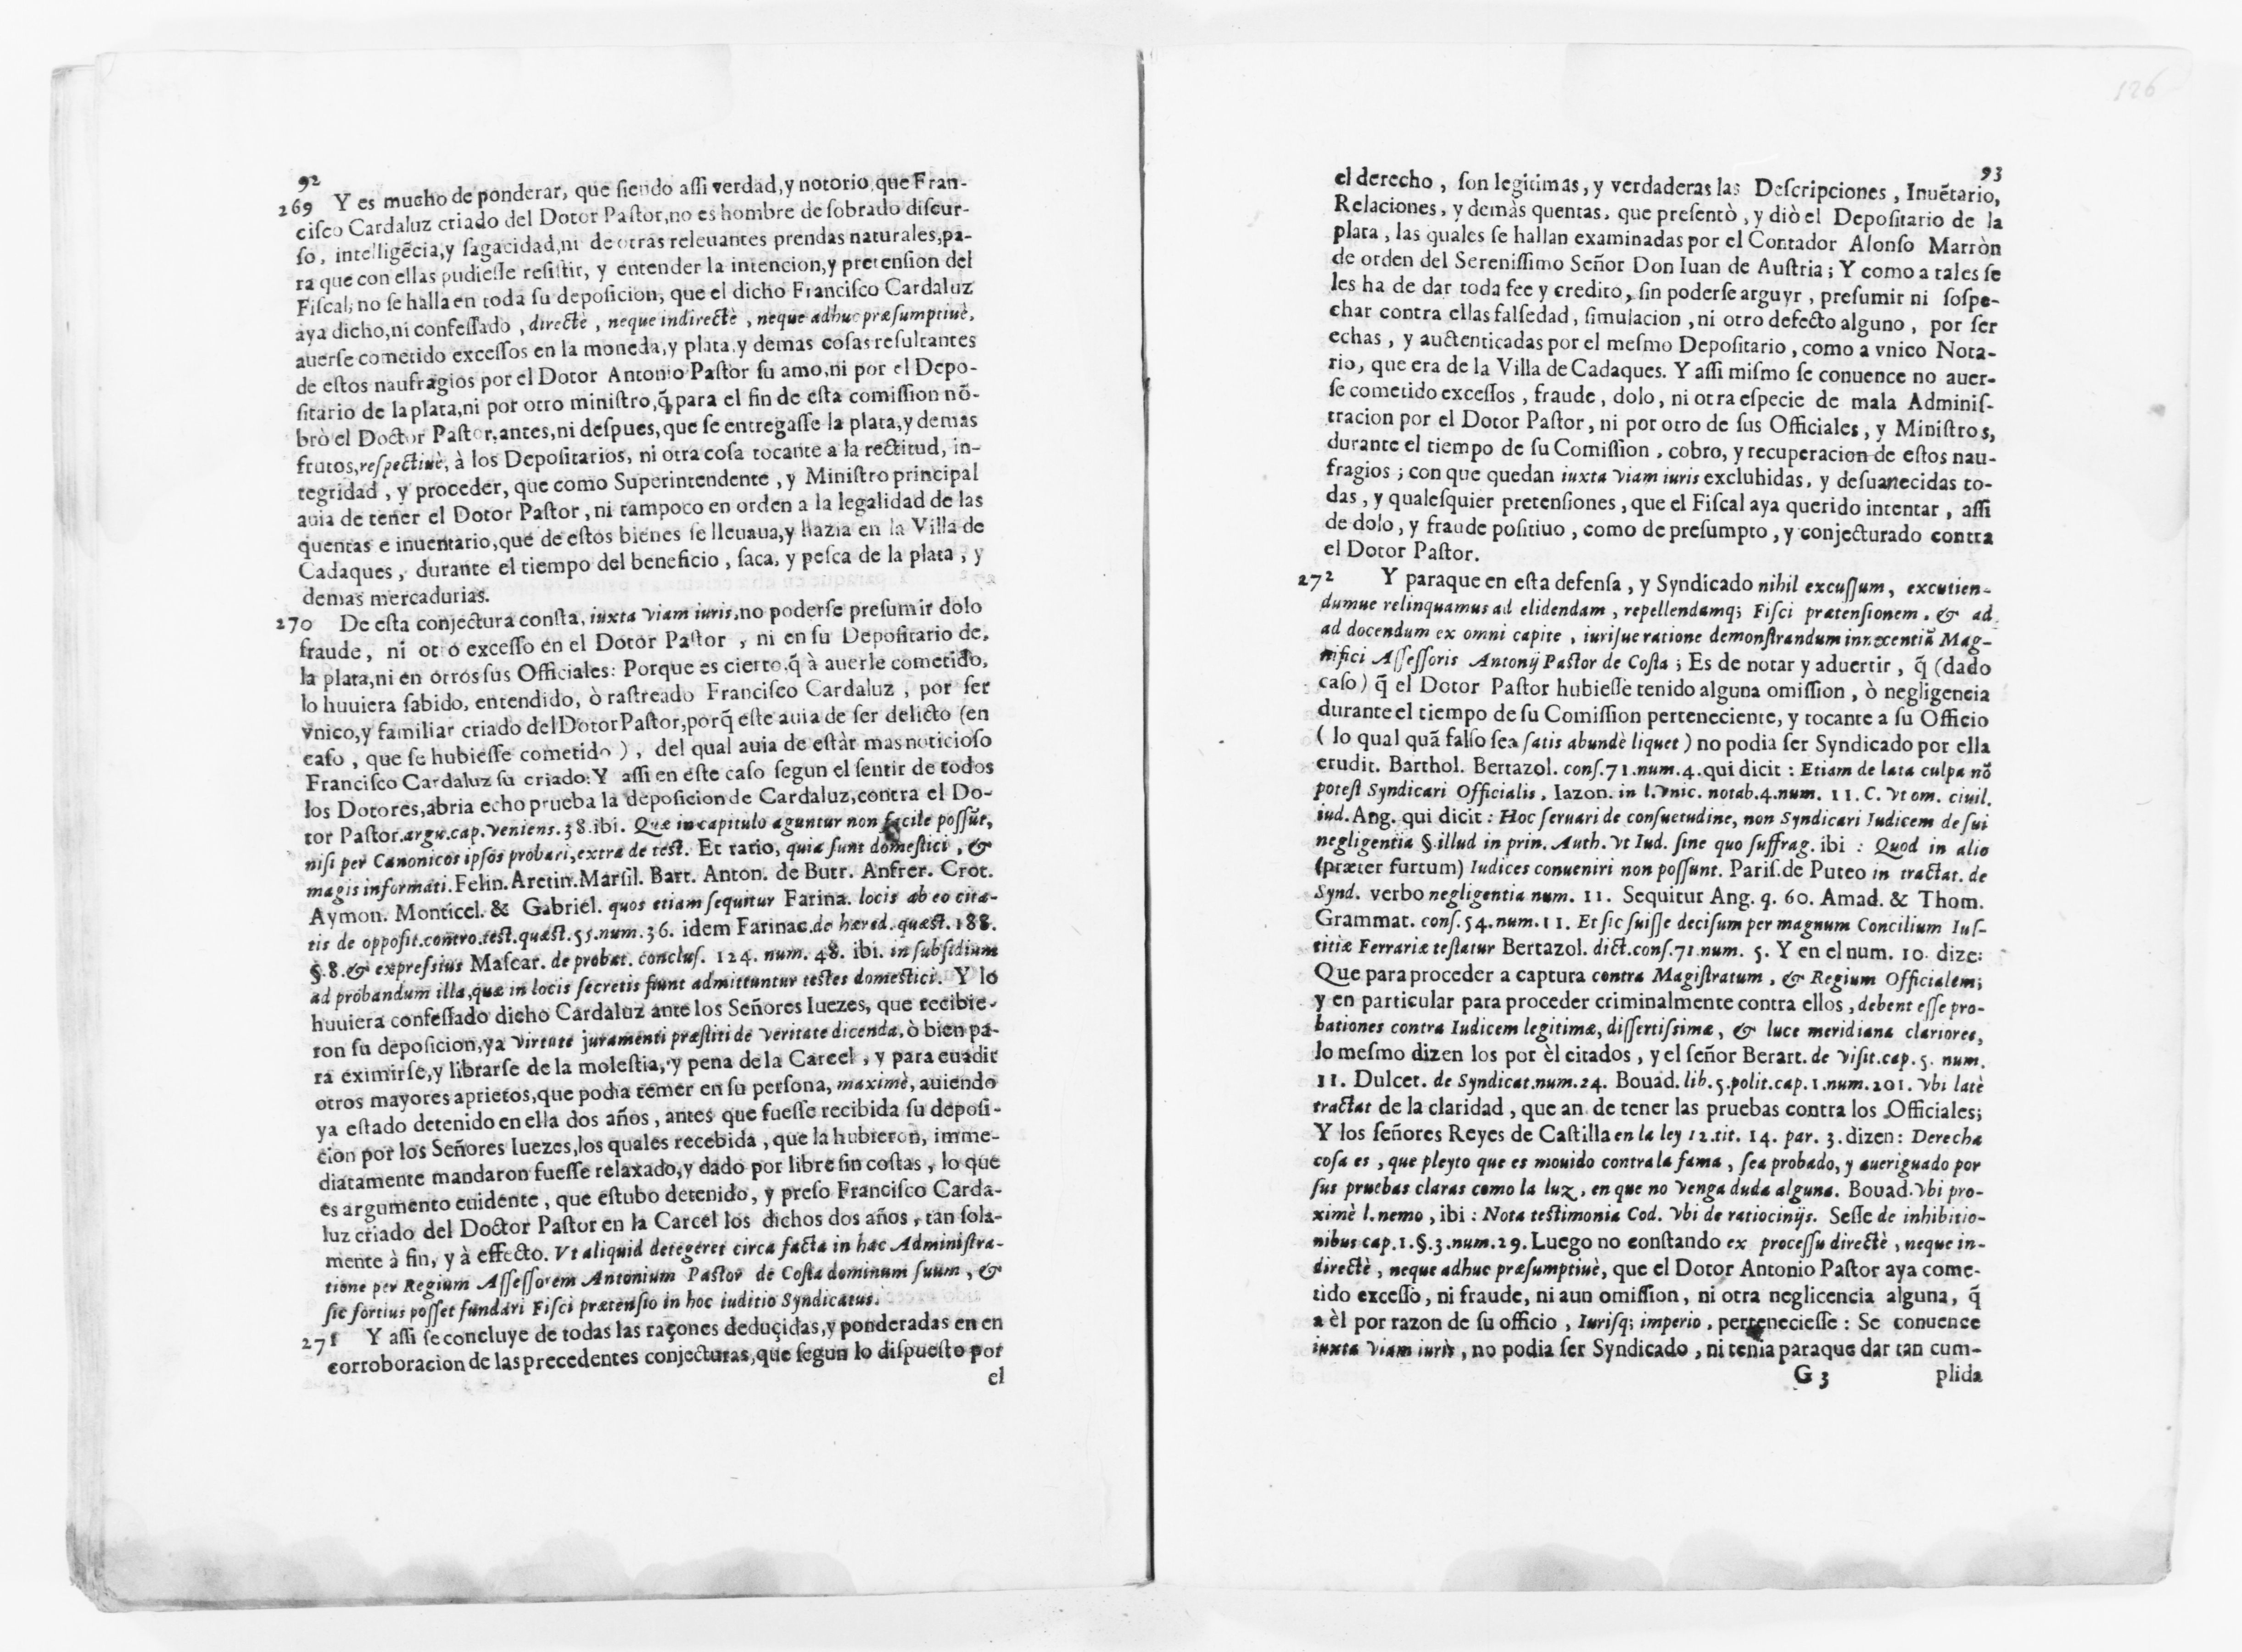 92
269 Y es mucho de ponderar, que siendo assi verdad,y notorio,que Fran-
cisco Cardaluz criado del Dotor Pastor,no es hombre de sobrado discur-
so, intelligẽcia,y sagacidad,ni de otras releuantes prendas naturales,pa-
ra que con ellas pudiesse resistir, y entender la intencion,y pretension del
Fiscal; no se halla en toda su deposicion, que el dicho Francisco Cardaluz
aya dicho,ni confessado , directè , neque indirectè , neque adhuc præsumptiuè,
auerse cometido excessos en la moneda,y plata,y demas cosas resultantes
de estos naufragios por el Dotor Antonio Pastor su amo,ni por el Depo-
sitario de la plata,ni por otro ministro,q̃ para el fin de esta comission nõ-
brò el Doctor Pastor,antes,ni despues,que se entregasse la plata,y demas
frutos,respectiuè, à los Depositarios, ni otra cosa tocante a la rectitud, in-
tegridad , y proceder, que como Superintendente , y Ministro principal
auia de tener el Dotor Pastor , ni tampoco en orden a la legalidad de las
quentas e inuentario,que de estos bienes se lleuaua,y hazia en la Villa de
Cadaques , durante el tiempo del beneficio , saca, y pesca de la plata , y
demas mercadurias.
270 De esta conjectura consta, iuxta viam iuris,no poderse presumir dolo
fraude, ni otro excesso en el Dotor Pastor , ni en su Depositario de,
la plata,ni en otros sus Officiales: Porque es cierto,q̃ à auerle cometido,
lo huuiera sabido, entendido, ò rastreado Francisco Cardaluz , por ser
vnico,y familiar criado del Dotor Pastor,porq̃ este auia de ser delicto (en
caso , que se hubiesse cometido ) , del qual auia de estàr mas noticioso
Francisco Cardaluz su criado:Y assi en este caso segun el sentir de todos
los Dotores,abria echo prueba la deposicion de Cardaluz,contra el Do-
tor Pastor.argu.cap.veniens.38.ibi. Quæ in capitulo aguntur non facile possũt,
nisi per Canonicos ipsos probari,extra de test. Et ratio, quia sunt domestici , &
magis informati.Felin.Aretin.Marsil. Bart. Anton. de Butr. Anfrer. Crot.
Aymon. Monticel. & Gabriel. quos etiam sequitur Farina. locis ab eo cita-
tis de opposit.contro.test.quæst.55.num.36. idem Farinac.de hæred.quæst.188.
§.8.& expressius Mascar. de probat. conclus. 124. num. 48. ibi. in subsidium
ad probandum illa,quæ in locis secretis fiunt admittuntur testes domestici. Y lo
huuiera confessado dicho Cardaluz ante los Señores Iuezes, que recibie-
ron su deposicion,ya virtute juramenti præstiti de veritate dicenda,ò bien pa-
ra eximirse,y librarse de la molestia,y pena de la Carcel , y para euadir
otros mayores aprietos,que podia temer en su persona, maximè, auiendo
ya estado detenido en ella dos años , antes que fuesse recibida su deposi-
cion por los Señores Iuezes,los quales recebida , que la hubieron, imme-
diatamente mandaron fuesse relaxado,y dado por libre sin costas , lo que
es argumento euidente , que estubo detenido, y preso Francisco Carda-
luz criado del Doctor Pastor en la Carcel los dichos dos años , tan sola-
mente à fin, y à effecto. Vt aliquid detegeret circa facta in hac Administra-
tione per Regium Assessorem Antonium Pastor de Costa dominum suum , &
sic fortius posset fundari Fisci prætensio in hoc iuditio Syndicatus.
271 Y assi se concluye de todas las raçones deduçidas,y ponderadas en en
corroboracion de las precedentes conjecturas,que segun lo dispuesto por
el
93
el derecho , son legitimas , y verdaderas las Descripciones , Inuẽtario,
Relaciones, y demàs quentas, que presentò , y diò el Depositario de la
plata , las quales se hallan examinadas por el Contador Alonso Marròn
de orden del Serenissimo Señor Don Iuan de Austria ; Y como a tales se
les ha de dar toda fee y credito, sin poderse arguyr , presumir ni sospe-
char contra ellas falsedad, simulacion , ni otro defecto alguno , por ser
echas , y auctenticadas por el mesmo Depositario , como a vnico Nota-
rio, que era de la Villa de Cadaques. Y assi mismo se conuence no auer-
se cometido excessos , fraude , dolo , ni otra especie de mala Adminis-
tracion por el Dotor Pastor , ni por otro de sus Officiales , y Ministros,
durante el tiempo de su Comission , cobro, y recuperacion de estos nau-
fragios ; con que quedan iuxta viam iuris excluhidas, y desuanecidas to-
das , y qualesquier pretensiones , que el Fiscal aya querido intentar , assi
de dolo, y fraude positiuo , como de presumpto , y conjecturado contra
el Dotor Pastor.
272 Y paraque en esta defensa , y Syndicado nihil excussum, excutien-
dumue relinquamus ad elidendam , repellendamq; Fisci prætensionem , & ad
ad docendum ex omni capite , iurisue ratione demonstrandum innocentiã Mag-
nifici Assessoris Antonij Pastor de Costa ; Es de notar y aduertir , q̃ (dado
caso) q̃ el Dotor Pastor hubiesse tenido alguna omission , ò negligencia
durante el tiempo de su Comission perteneciente, y tocante a su Officio
( lo qual quã falso sea satis abundè liquet ) no podia ser Syndicado por ella
erudit. Barthol. Bertazol. cons.71.num.4.qui dicit : Etiam de lata culpa nõ
potest Syndicari Officialis , Iazon. in l.vnic. notab.4.num. 11. C. vt om. ciuil.
iud. Ang. qui dicit : Hoc seruari de consuetudine, non Syndicari Iudicem de sui
negligentia §.illud in prin. Auth. vt Iud. sine quo suffrag. ibi : Quod in alio
(præter furtum) Iudices conueniri non possunt. Paris.de Puteo in tractat. de
Synd. verbo negligentia num. 11. Sequitur Ang. q. 60. Amad. & Thom.
Grammat. cons.54.num.11. Et sic fuisse decisum per magnum Concilium Ius-
titiæ Ferrariæ testatur Bertazol. dict.cons.71.num. 5. Y en el num. 10. dize:
Que para proceder a captura contra Magistratum , & Regium Officialem;
y en particular para proceder criminalmente contra ellos , debent esse pro-
bationes contra Iudicem legitimæ, dissertissimæ, & luce meridiana clariores,
lo mesmo dizen los por èl citados , y el señor Berart. de visit.cap.5. num.
11. Dulcet. de Syndicat.num.24. Bouad. lib.5.polit.cap.1.num.201. vbi latè
tractat de la claridad , que an de tener las pruebas contra los Officiales;
Y los señores Reyes de Castilla en la ley 12.tit. 14. par. 3. dizen : Derecha
cosa es , que pleyto que es mouido contra la fama , sea probado, y aueriguado por
sus pruebas claras como la luz, en que no venga duda alguna. Bouad.vbi pro-
ximè l.nemo , ibi : Nota testimonia Cod. vbi de ratiocinijs. Sesse de inhibitio-
nibus cap.1.§.3.num.29. Luego no constando ex processu directè , neque in-
directè , neque adhuc præsumptiuè, que el Dotor Antonio Pastor aya come-
tido excesso, ni fraude, ni aun omission, ni otra neglicencia alguna, q̃
a èl por razon de su officio , Iurisq; imperio , perteneciesse : Se conuence
iuxta viam iuris , no podia ser Syndicado , ni tenia paraque dar tan cum-
G 3 plida
126